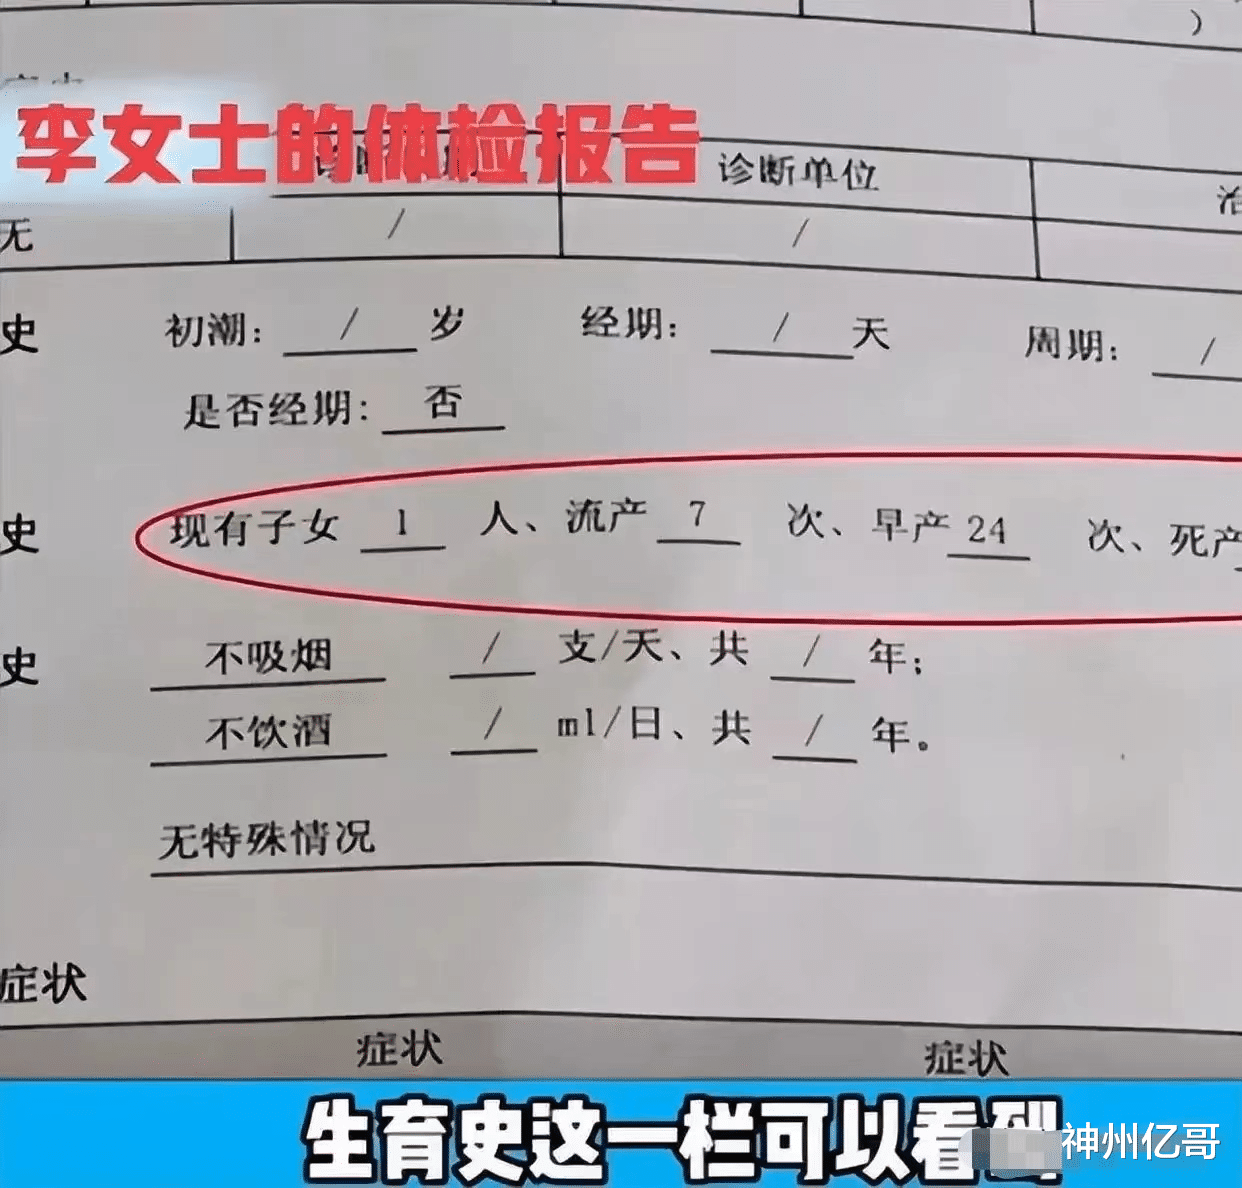 )
李女士的体检报告
诊断单位
治
无 / /
史 初潮: / 岁 经期: / 天 周期: /
是否经期: 否
史 现有子女 1 人、流产 7 次、早产 24 次、死产
史 不吸烟 / 支/天、共 / 年;
不饮酒 / ml/日、共 / 年。
无特殊情况
症状
症状 症状
生育史这一栏可以看到
神州亿哥